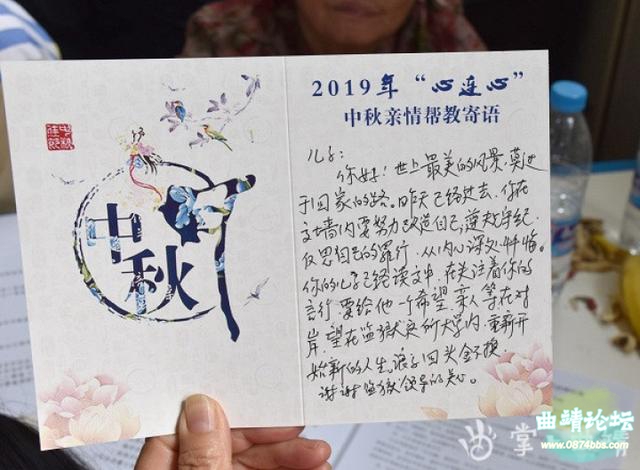 2019年“心连心”
中秋亲情帮教寄语
中秋
佳节
中秋
儿子:
你好!世上最美的风景,莫过
于回家的路。昨天已经过去,你在
大墙内要努力改造自己,遵守纪,
反思自己的罪行,从内心深处忏悔。
你的儿子已经读大中,在关注着你的
言行,要给他一个希望,亲人等在对
岸,望在监狱这所大学内,重新开
始新的人生,浪子回头金不换。
谢谢监狱领导的关心。
曲靖论坛
www.0874bbs.com
掌